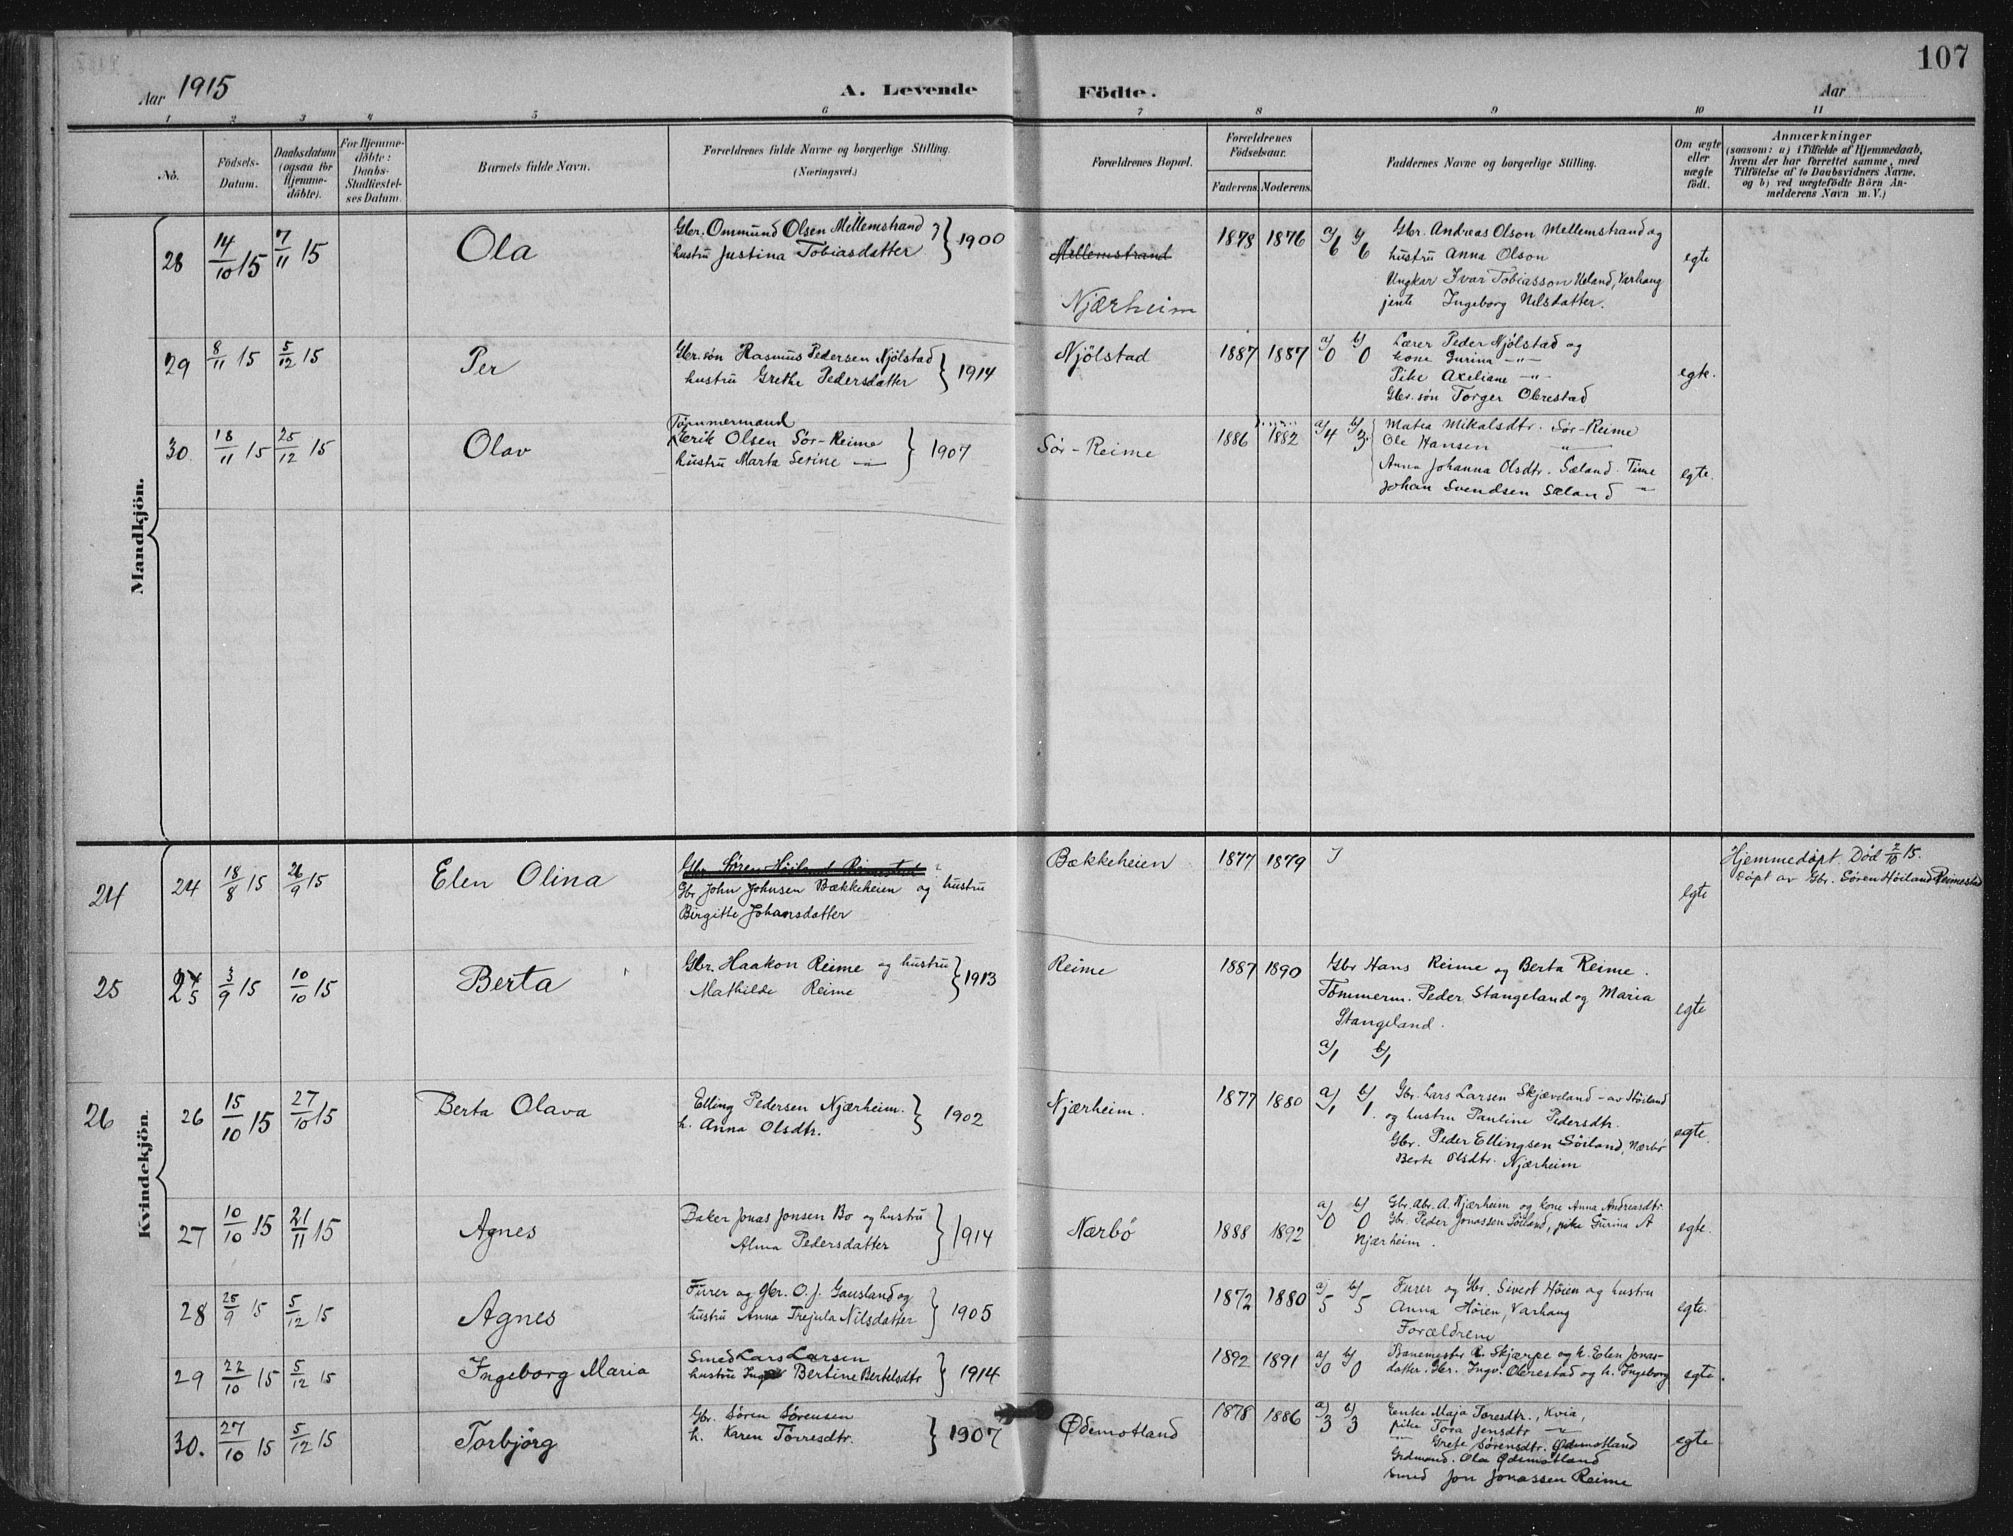 107
Aar 1915
A. Levende Födte.
Aar
1 2 3 4 5 6 7 8 9 10 11
No.
Födsels-Datum.
Daabsdatum (ogsaa for Hjemmedöbte).
For Hjemmedöbte: Daabs-Stadfæstelses Datum.
Barnets fulde Navn.
Forældrenes fulde Navne og borgerlige Stilling. (Næringsvei.)
Forældrenes Bopæl.
Forældrenes Födselsaar.
Faderens. Moderens.
Faddernes Navne og borgerlige Stilling.
Om ægte eller uægte født.
Anmærkninger
(saasom: a) i Tilfælde af Hjemmedaab,
hvem der har forrettet samme, med
Tilföielse af to Daabsvidners Navne,
og b) ved uægtefödte Börn Anmelderens Navn m. V.)
Mandkjön.
28 14/10 15 7/11 15 Ola
Gbr. Ommund Olsen Mellemstrand
hustru Justina Tobiasdatter } 1900
Mellemstrand
Njærheim
1878 1876 a/6 b/6
Gbr. Andreas Olson Mellemstrand og
hustru Anna Olson
Ungkar Ivar Tobiasson Ueland, Varhaug
jente Ingeborg Nilsdatter.
egte
29 8/11 15 5/12 15 Per
Gbr. søn Rasmus Pedersen Njölstad
hustru Grethe Pedersdatter } 1914
Njölstad
1887 1887 a/0 b/0
Lærer Peder Njölstad og
kone Gurina -"-
Pike Axeliane -"-
Gbr. søn Torger Obrestad
egte.
30 18/11 15 25/12 15 Olav
Tømmermand
Erik Olsen Sör-Reime
hustru Marta Serine -"- } 1907
Sör-Reime
1886 1882 a/4 b/3
Matea Mikalsdtr. Sör-Reime
Ole Hansen "
Anna Johanna Olsdtr. Sæland. Time
Johan Svendsen Sæland "
egte.
Kvindekjön.
24 24 18/8 15 26/9 15 Elen Olina
Gbr. Sören Höiland Reimestad
Gbr. John Johnsen Bækkeheien og hustru
Birgitte Johansdatter
Bækkeheien
1877 1879
egte
Hjemmedøpt. Död 2/10 15.
Döpt av Gbr. Sören Höiland Reimestad
25 25 3/9 15 10/10 15 Berta
Gbr. Haakon Reime og hustru
Mathilde Reime } 1913
Reime
1887 1890
Gbr Hans Reime og Berta Reime.
Tömmerm. Peder Stangeland og Maria
Stangeland.
a/1 b/1
egte
26 26 15/10 15 27/10 15 Berta Olava
Elling Pedersen Njærheim.
h. Anna Olsdtr. } 1902
Njærheim.
1877 1880 a/1 b/1.
Gbr. Lars Larsen Skjæveland - av Höiland
og hustru Pauline Pedersdtr.
Gbr. Peder Ellingsen Söiland, Nærbö
Berte Olsdtr. Njærheim
egte.
27 10/10 15 21/11 15 Agnes
Baker Jonas Jonsen Bo og hustru
Alma Pedersdatter } 1914
Nærbö
1888 1892 a/0 b/0
Gbr. Abr. A. Njærheim og kone Anna Andreasdtr.
Gbr. Peder Jonassen Söiland, pike Gurina A
Njærheim.
egte.
28 25/9 15 5/12 15 Agnes
Furer og gbr. O. J. Gausland og
hustru Anna Trejula Nilsdatter } 1905
1872 1880 a/5 b/5
Furer og Gbr. Sivert Höien og hustru
Anna Höien, Varhaug
Forældrene
egte.
29 22/10 15 5/12 15 Ingeborg Maria
Smed Lars Larsen
hustru Bertine Bertelsdtr } 1914
1892 1891 a/0 b/0
Banemester Skjærpe og h. Elen Jonas-
datter. Gbr. Ingv. Obrestad og h. Ingeborg
egte.
30. 27/10 15 5/12 15 Torbjörg
Gbr. Sören Sörensen
h. Karen Törresdtr. } 1907
Ødemotland
1878 1886 a/3 b/3
Enke Maja Toresdtr., Kvia,
pike Tora Jensdtr "
-"- Grete Sörensdtr. Ødemotland
Grdmand. Ola Ødemotland
smed Jon Jonassen Reime
egte